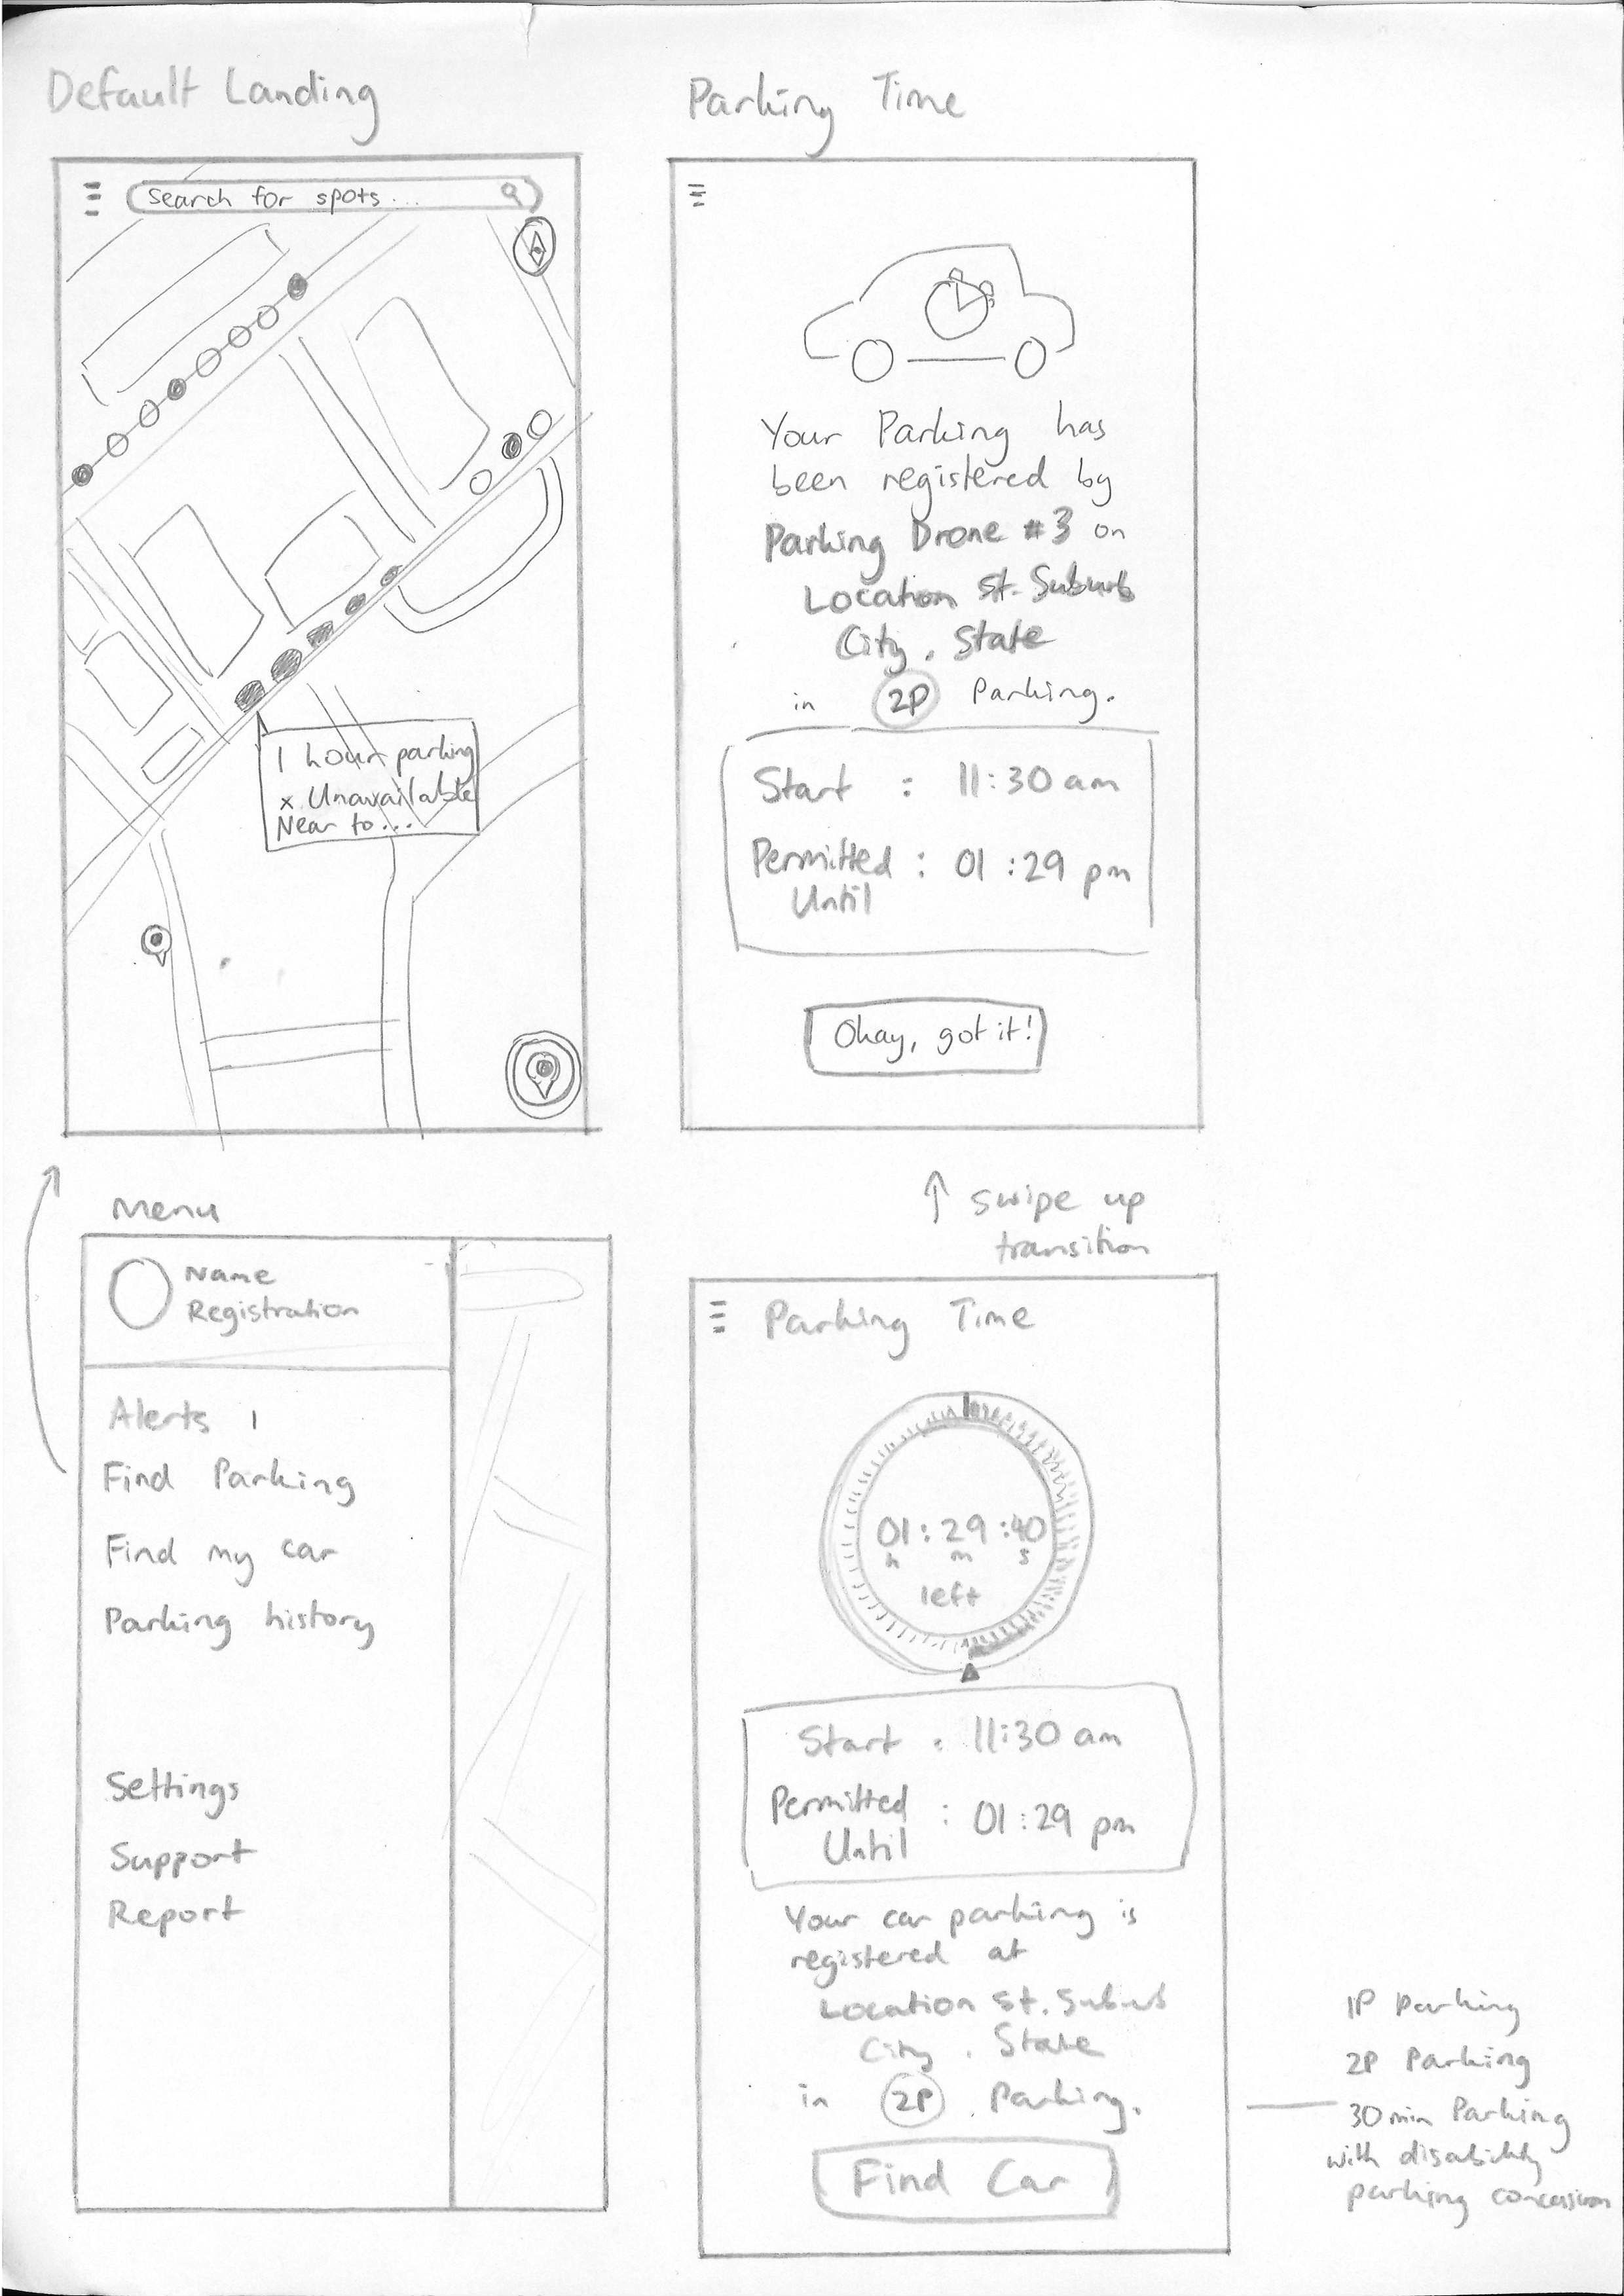 Default Landing
Search for spots...
1 hour parking
x Unavailable
Near to...
Parking Time
Your Parking has
been registered by
Parking Drone #3 on
Location St. Suburb
City, State
in 2P Parking.
Start : 11:30 am
Permitted : 01:29 pm
Until
Okay, got it!
Menu
Name
Registration
Alerts 1
Find Parking
Find my car
Parking history
Settings
Support
Report
↑ swipe up
transition
Parking Time
01:29:40
h m s
left
Start : 11:30 am
Permitted : 01:29 pm
Until
Your car parking is
registered at
Location St. Suburb
City, State
in 2P Parking.
Find Car
1P parking
2P Parking
30 min Parking
with disability
parking concession